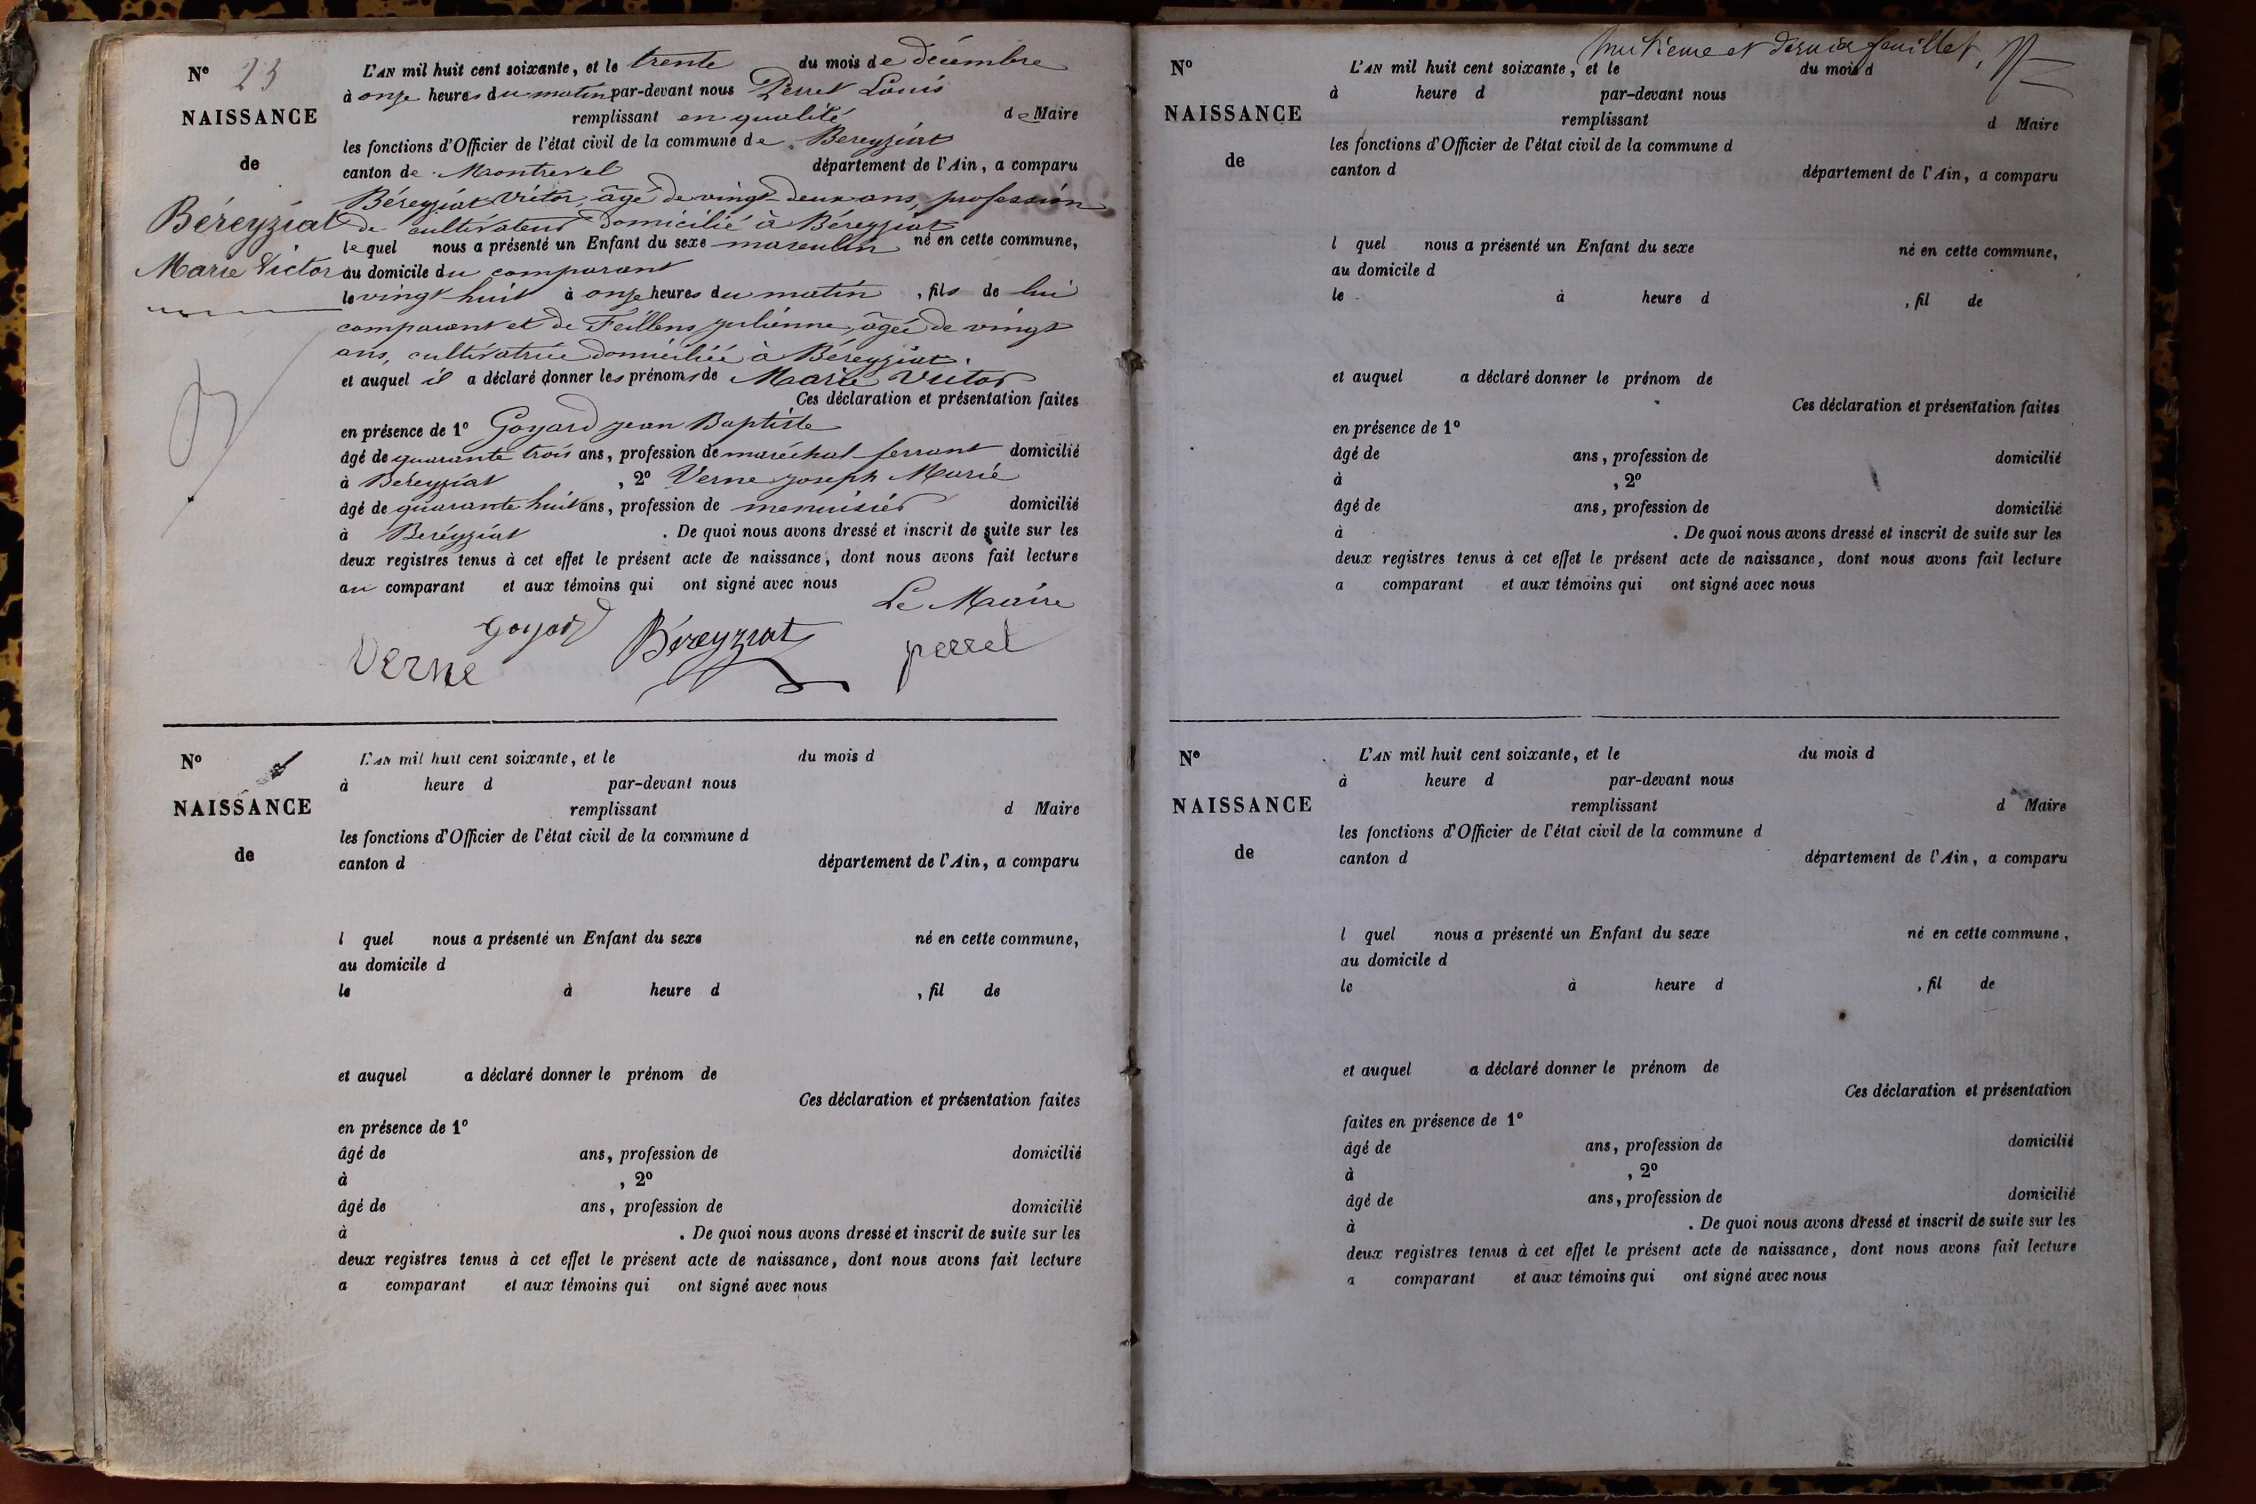 N° 23
NAISSANCE
de
Béreyziat
Marie Victor
L'AN mil huit cent soixante, et le trente du mois de décembre
à onze heures du matin par-devant nous Perret Louis
remplissant en qualité de Maire
les fonctions d'Officier de l'état civil de la commune de Béreyziat
canton de Montrevel département de l'Ain, a comparu
Béreyziat Victor, âgé de vingt-deux ans, profession
de cultivateur domicilié à Béreyziat
lequel nous a présenté un Enfant du sexe masculin né en cette commune,
au domicile du comparant
le vingt-huit à onze heures du matin, fils de lui
comparant et de Feillens Julienne, âgée de vingt
ans, cultivatrice domiciliée à Béreyziat.
et auquel il a déclaré donner les prénoms de Marie Victor
Ces déclaration et présentation faites
en présence de 1° Goyard Jean Baptiste
âgé de quarante trois ans, profession de maréchal-ferrant domicilié
à Bereyziat, 2° Verne Joseph Marie
âgé de quarante huit ans, profession de menuisier domicilié
à Beréyziat. De quoi nous avons dressé et inscrit de suite sur les
deux registres tenus à cet effet le présent acte de naissance, dont nous avons fait lecture
au comparant et aux témoins qui ont signé avec nous
Le Maire
Goyard
Verne Béreyziat perret
N°
NAISSANCE
de
L'AN mil huit cent soixante, et le du mois d
à heure d par-devant nous
remplissant d Maire
les fonctions d'Officier de l'état civil de la commune d
canton d département de l'Ain, a comparu
l quel nous a présenté un Enfant du sexe né en cette commune,
au domicile d
le à heure d , fil de
et auquel a déclaré donner le prénom de
Ces déclaration et présentation faites
en présence de 1°
âgé de ans, profession de domicilié
à , 2°
âgé de ans, profession de domicilié
à . De quoi nous avons dressé et inscrit de suite sur les
deux registres tenus à cet effet le présent acte de naissance, dont nous avons fait lecture
a comparant et aux témoins qui ont signé avec nous
huitieme et dernier feuillet,
N°
NAISSANCE
de
L'AN mil huit cent soixante, et le du mois d
à heure d par-devant nous
remplissant d Maire
les fonctions d'Officier de l'état civil de la commune d
canton d département de l'Ain, a comparu
l quel nous a présenté un Enfant du sexe né en cette commune,
au domicile d
le à heure d , fil de
et auquel a déclaré donner le prénom de
Ces déclaration et présentation faites
en présence de 1°
âgé de ans, profession de domicilié
à , 2°
âgé de ans, profession de domicilié
à . De quoi nous avons dressé et inscrit de suite sur les
deux registres tenus à cet effet le présent acte de naissance, dont nous avons fait lecture
a comparant et aux témoins qui ont signé avec nous
N°
NAISSANCE
de
L'AN mil huit cent soixante, et le du mois d
à heure d par-devant nous
remplissant d Maire
les fonctions d'Officier de l'état civil de la commune d
canton d département de l'Ain, a comparu
l quel nous a présenté un Enfant du sexe né en cette commune,
au domicile d
le à heure d , fil de
et auquel a déclaré donner le prénom de
Ces déclaration et présentation
faites en présence de 1°
âgé de ans, profession de domicilié
à , 2°
âgé de ans, profession de domicilié
à . De quoi nous avons dressé et inscrit de suite sur les
deux registres tenus à cet effet le présent acte de naissance, dont nous avons fait lecture
a comparant et aux témoins qui ont signé avec nous